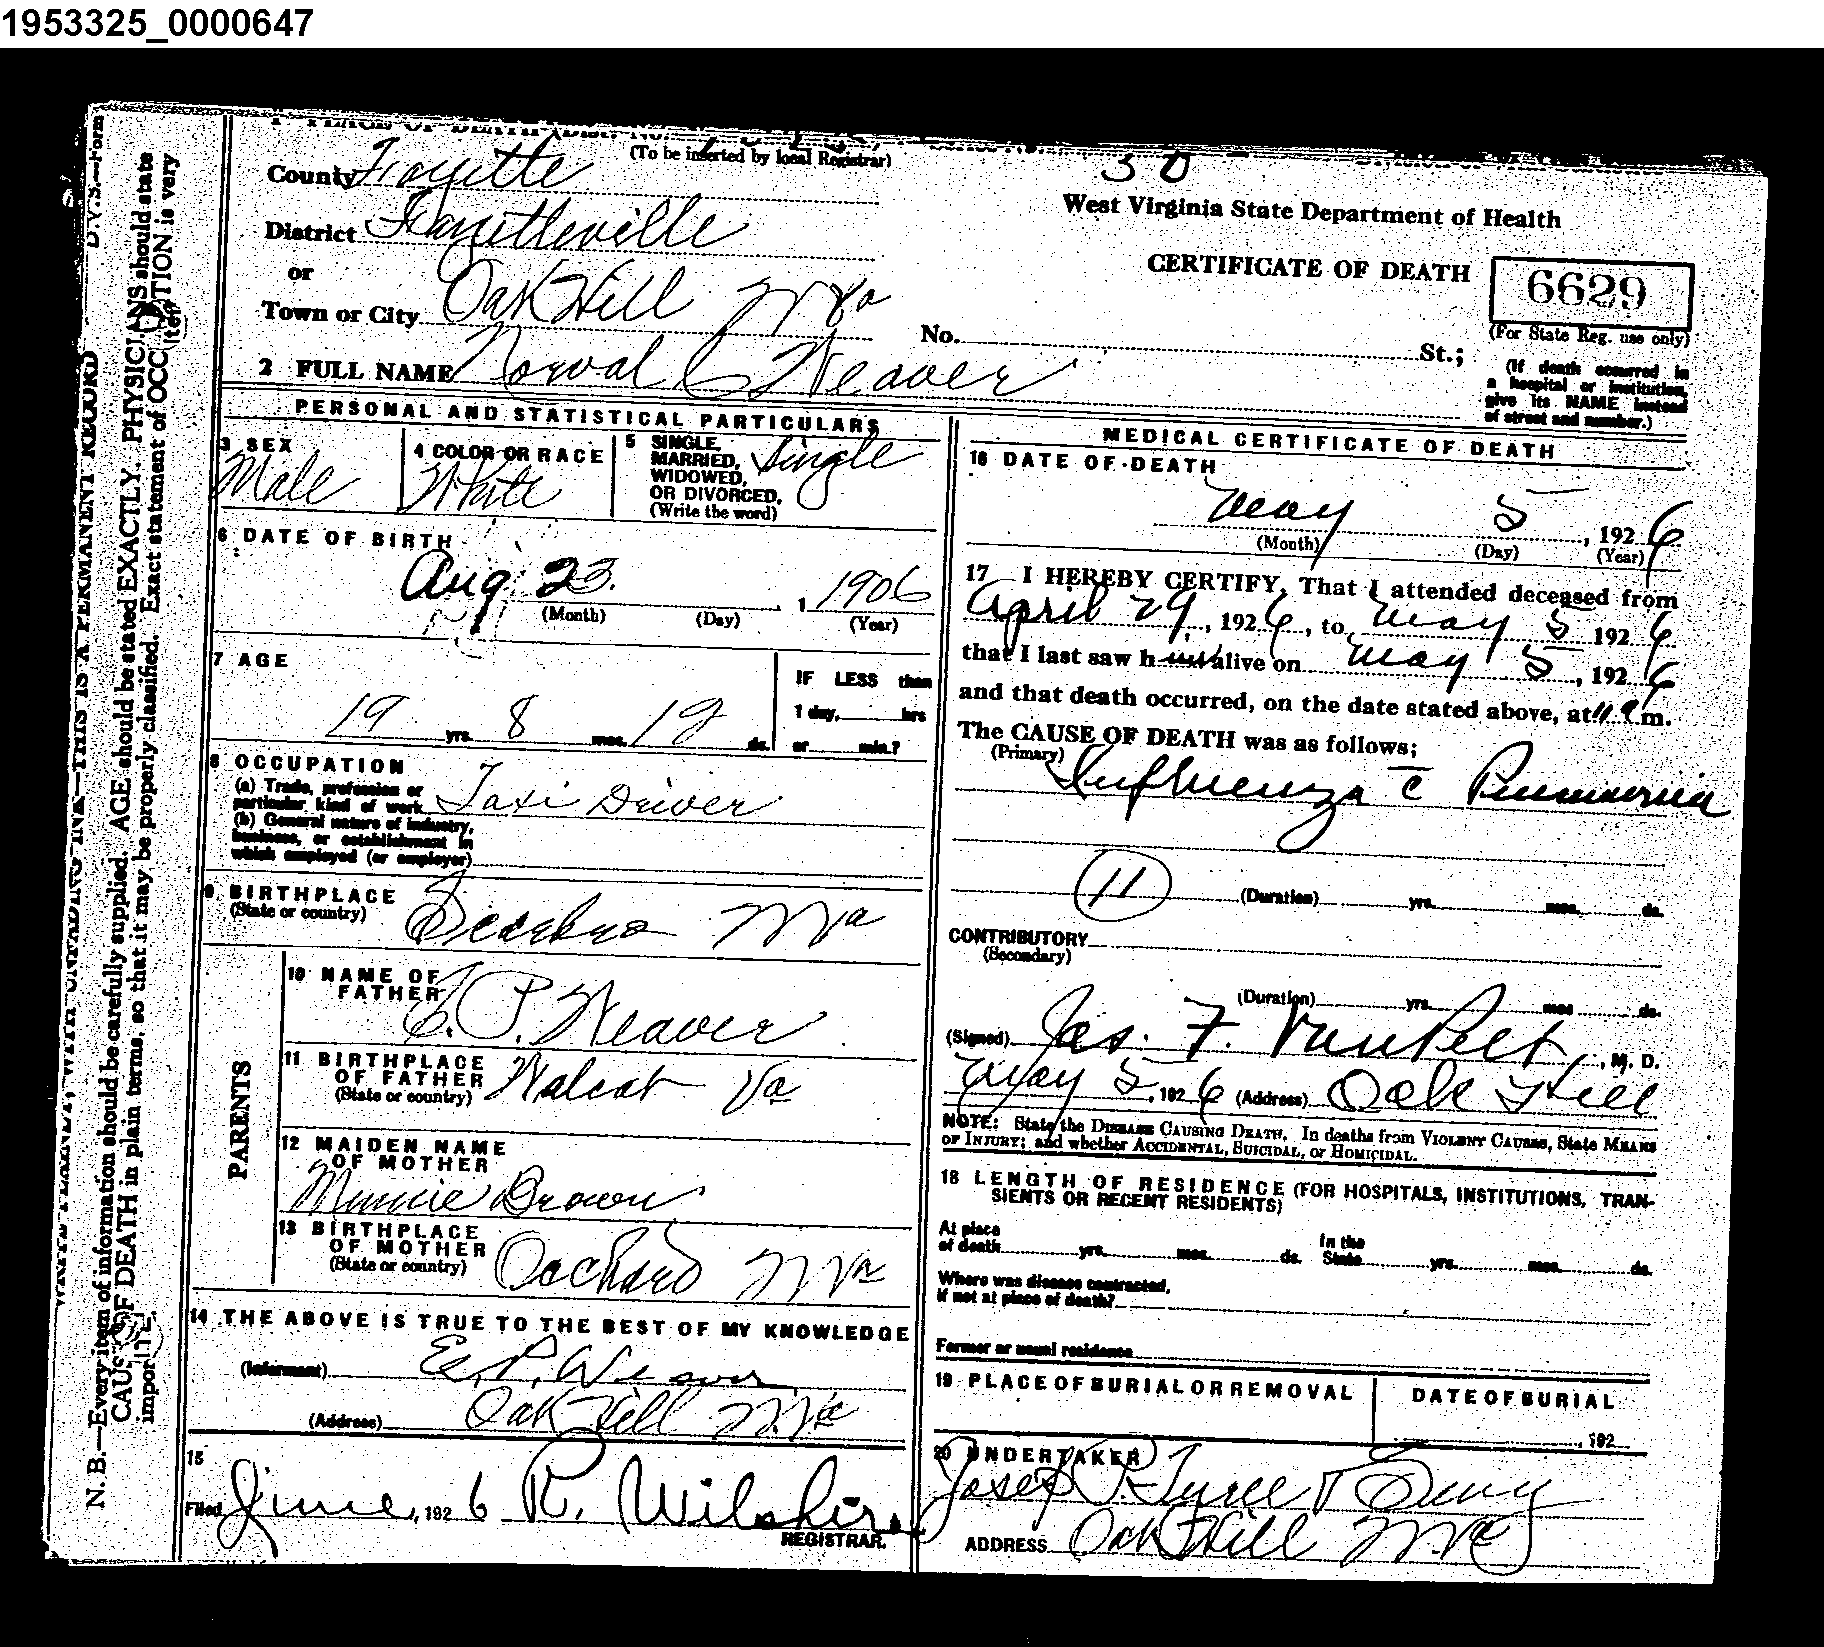 1953325_0000647
(To be inserted by local Registrar)
30
County Fayette
West Virginia State Department of Health
District Fayetteville
or
CERTIFICATE OF DEATH
6629
(For State Reg. use only)
Town or City Oak Hill W Va
No. St.;
(If death occurred in
a hospital or institution,
give its NAME instead
of street and number.)
2 FULL NAME Norval C Weaver
PERSONAL AND STATISTICAL PARTICULARS
3 SEX
Male
4 COLOR OR RACE
White
5 SINGLE,
MARRIED,
WIDOWED,
OR DIVORCED,
(Write the word)
Single
6 DATE OF BIRTH
Aug 23. , 1906
(Month) (Day) (Year)
7 AGE
19 yrs. 8 mos. 12 ds.
IF LESS than
1 day, hrs
or min.?
8 OCCUPATION
(a) Trade, profession or
particular kind of work Taxi Driver
(b) General nature of industry,
business, or establishment in
which employed (or employer)
9 BIRTHPLACE
(State or country) Scarbro W Va
PARENTS
10 NAME OF
FATHER E. P. Weaver
11 BIRTHPLACE
OF FATHER
(State or country) Va
12 MAIDEN NAME
OF MOTHER
Minnie Brown
13 BIRTHPLACE
OF MOTHER
(State or country) Orchard W Va
14 THE ABOVE IS TRUE TO THE BEST OF MY KNOWLEDGE
(Informant) E. P. Weaver
(Address) Oak Hill W. Va
15
Filed June, 1926 R. Wilshire
REGISTRAR.
MEDICAL CERTIFICATE OF DEATH
16 DATE OF DEATH
May 5 , 1926
(Month) (Day) (Year)
17 I HEREBY CERTIFY, That I attended deceased from
April 29, 1926, to May 5 1926
that I last saw him alive on May 5, 1926
and that death occurred, on the date stated above, at m.
The CAUSE OF DEATH was as follows;
(Primary)
Influenza c Pneumonia
11 (Duration) yrs. mos. ds.
CONTRIBUTORY
(Secondary)
(Duration) yrs. mos. ds.
(Signed) Jas. F. VanPelt, M. D.
May 5, 1926 (Address) Oak Hill
NOTE: State the DISEASE CAUSING DEATH. In deaths from VIOLENT CAUSES, State MEANS
OF INJURY; and whether ACCIDENTAL, SUICIDAL, OR HOMICIDAL.
18 LENGTH OF RESIDENCE (FOR HOSPITALS, INSTITUTIONS, TRAN-
SIENTS OR RECENT RESIDENTS)
At place
of death yrs. mos. ds.
In the
State yrs. mos. ds.
Where was disease contracted,
if not at place of death?
Former or usual residence
19 PLACE OF BURIAL OR REMOVAL
DATE OF BURIAL
, 192
20 UNDERTAKER
ADDRESS Oak Hill W. Va
N. B.—Every item of information should be carefully supplied. AGE should be stated EXACTLY. PHYSICIANS should state
CAUSE OF DEATH in plain terms, so that it may be properly classified. Exact statement of OCCUPATION is very